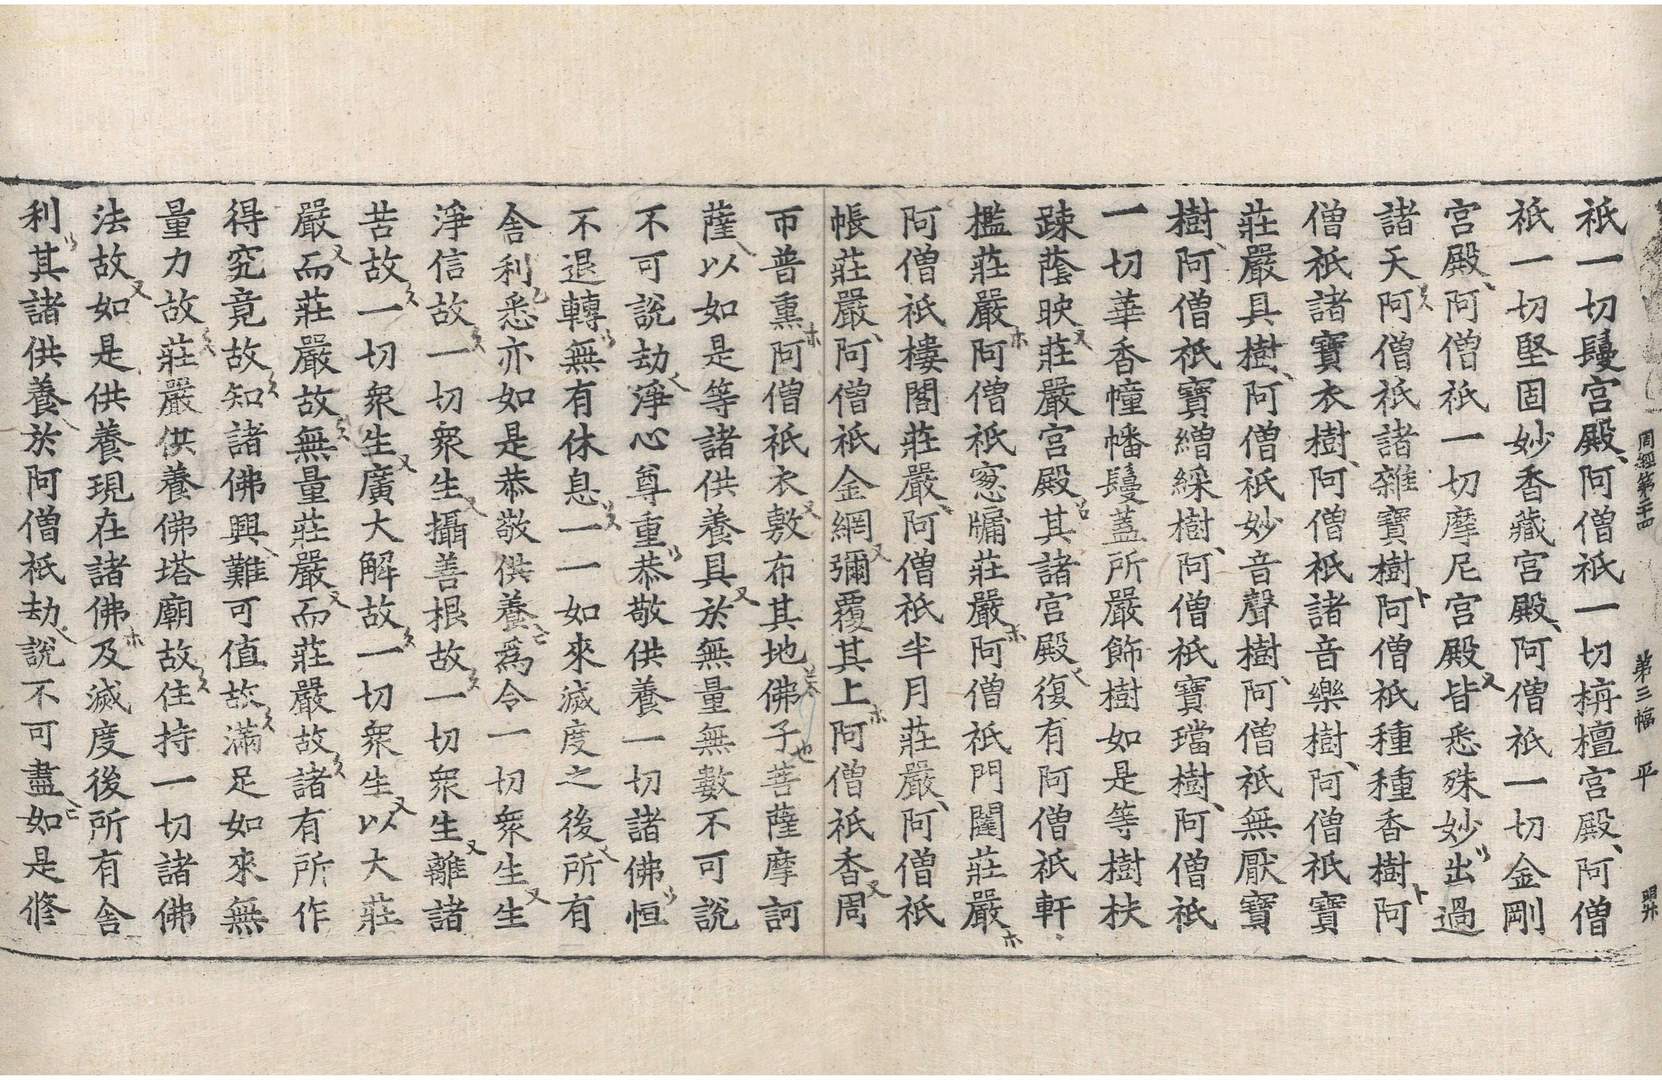 周經第二十四 第三幅 平
祇一切鬘宮殿阿僧祇一切栴檀宮殿阿僧
祇一切堅固妙香藏宮殿阿僧祇一切金剛
宮殿阿僧祇一切摩尼宮殿皆悉殊妙出過
諸天阿僧祇諸雜寶樹阿僧祇種種香樹阿
僧祇諸寶衣樹阿僧祇諸音樂樹阿僧祇寶
莊嚴具樹阿僧祇妙音聲樹阿僧祇無厭寶
樹阿僧祇寶繒綵樹阿僧祇寶璫樹阿僧祇
一切華香幢幡鬘蓋所嚴飾樹如是等樹扶
踈蔭映莊嚴宮殿其諸宮殿復有阿僧祇軒
檻莊嚴阿僧祇窻牖莊嚴阿僧祇門闥莊嚴
阿僧祇樓閣莊嚴阿僧祇半月莊嚴阿僧祇
帳莊嚴阿僧祇金網彌覆其上阿僧祇香周
帀普熏阿僧祇衣敷布其地佛子菩薩摩訶
薩以如是等諸供養具於無量無數不可說
不可說劫淨心尊重恭敬供養一切諸佛恒
不退轉無有休息一一如來滅度之後所有
舍利悉亦如是恭敬供養爲令一切衆生生
淨信故一切衆生攝善根故一切衆生離諸
苦故一切衆生廣大解故一切衆生以大莊
嚴而莊嚴故無量莊嚴而莊嚴故諸有所作
得究竟故知諸佛興難可值故滿足如來無
量力故莊嚴供養佛塔廟故住持一切諸佛
法故如是供養現在諸佛及滅度後所有舍
利其諸供養於阿僧祇劫說不可盡如是修